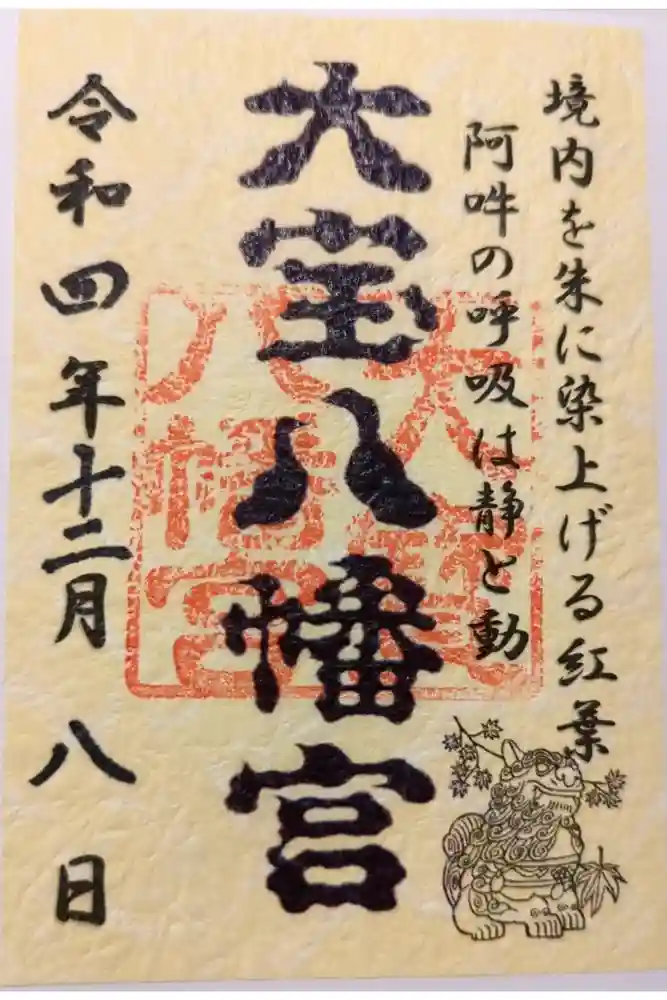 境内を朱に染上げる紅葉
阿吽の呼吸は静と動
大宝八幡宮
大宝八幡宮
令和四年十二月八日